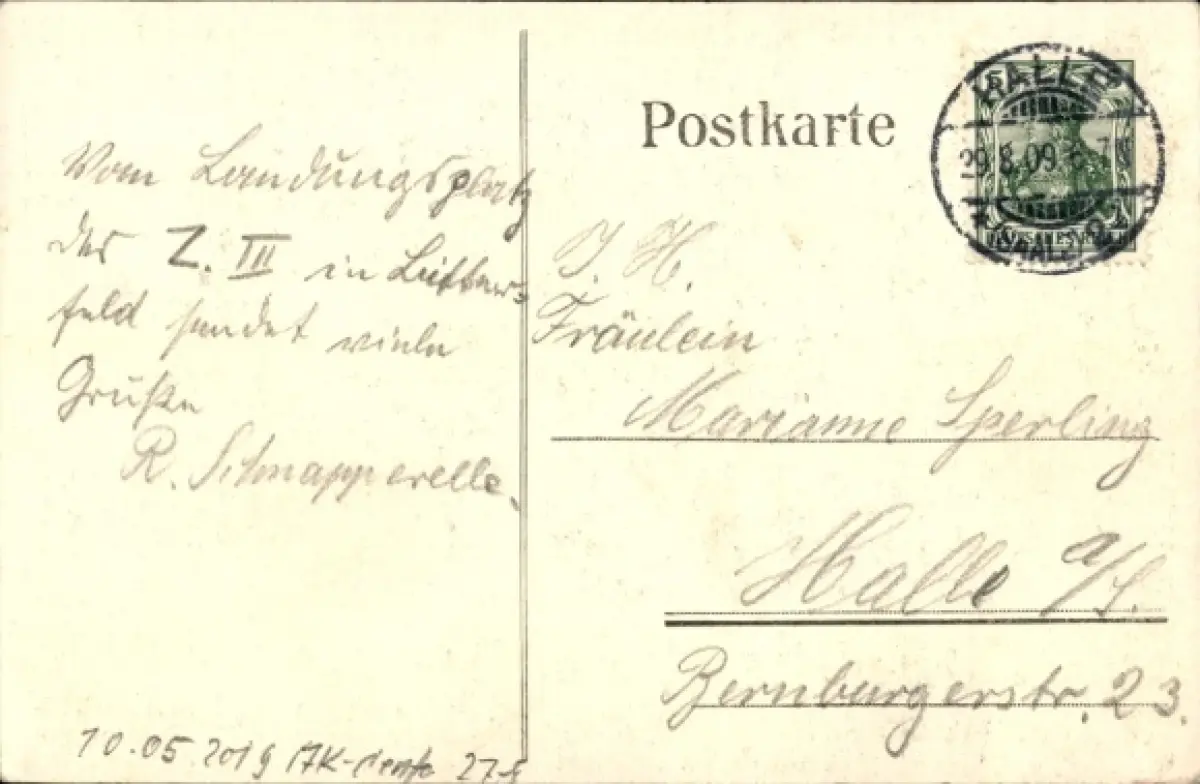 Postkarte
HALLE
29.8.09. 6-7N
* (SAALE) 2
DEUTSCHES REICH
Vom Landungsplatz
des Z. III in Bitter=
feld sendet viele
Grüße
R. Schnapperelle.
I. H.
Fräulein
Marianne Sperling
Halle a/S.
Bernburgerstr. 23.
10.05.2019 AK-